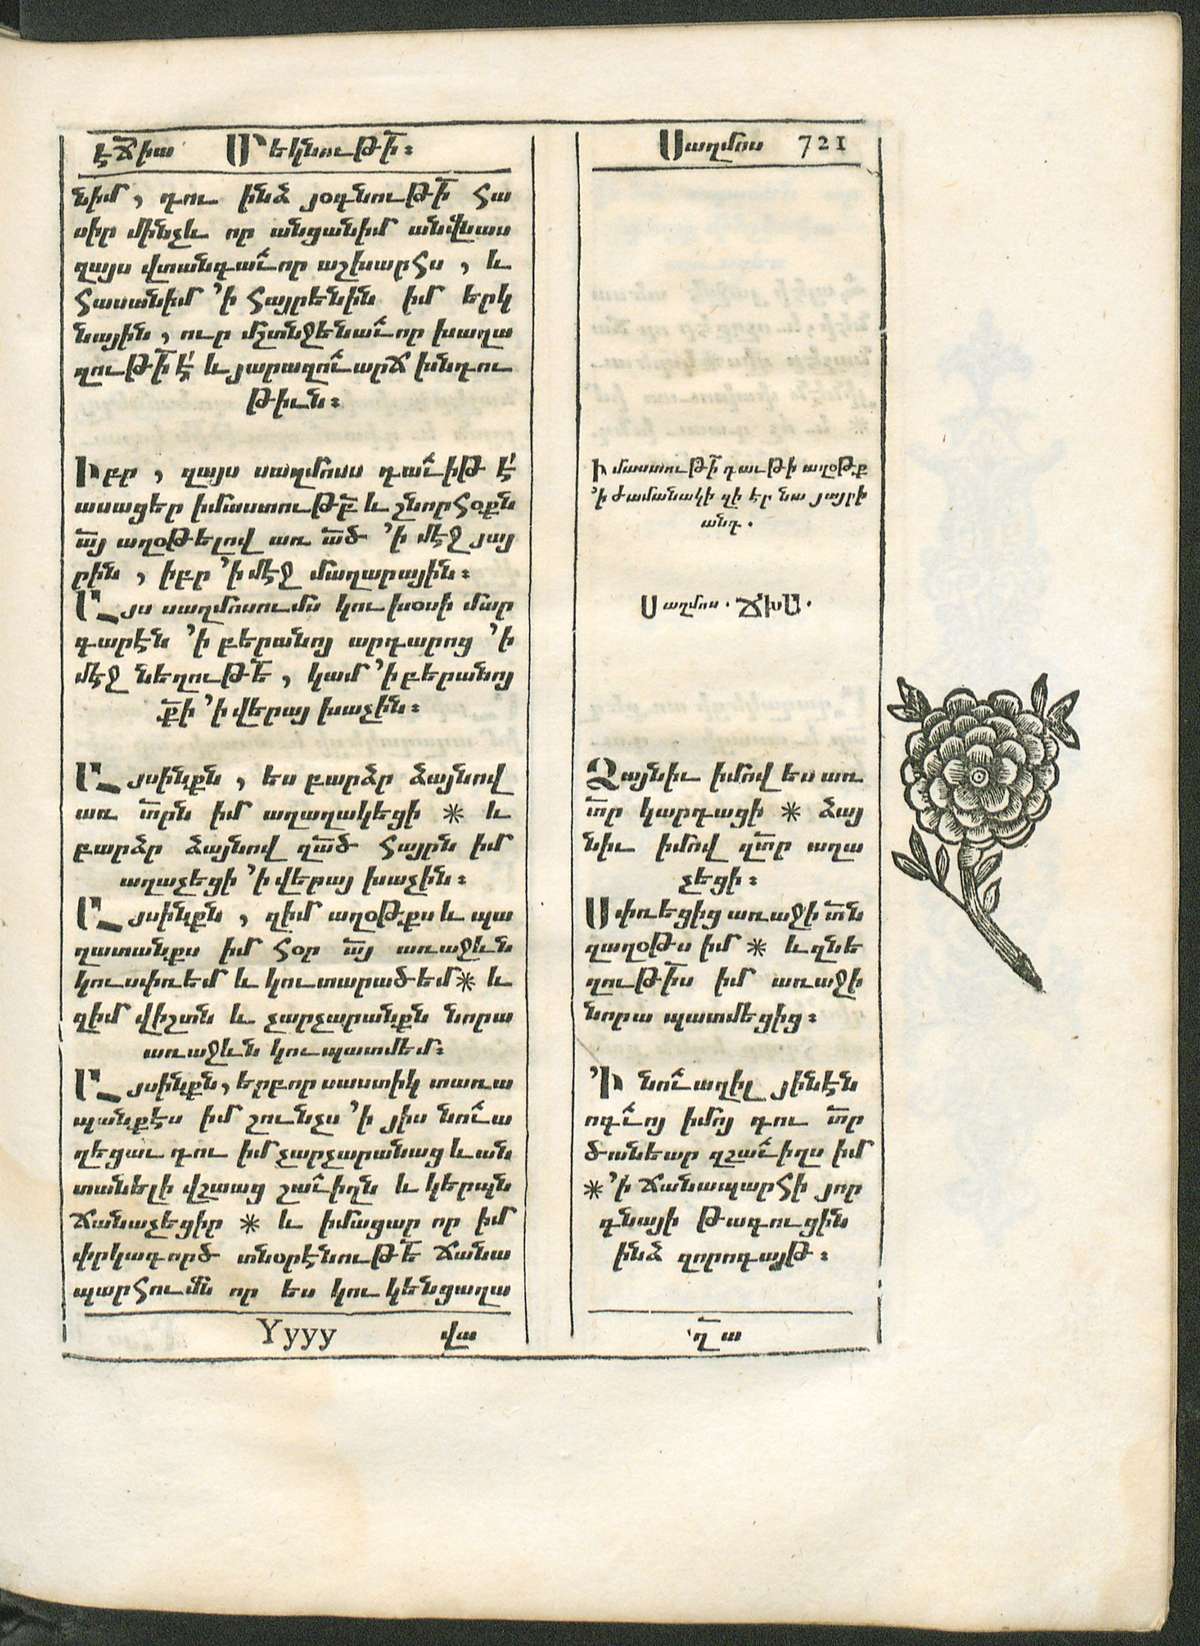 էջիա Մեկնութի՟։
նիմ, դու ինձ յօգնութի՟ հա
սիր մինչև որ անցանիմ անվնաս
զայս վտանգաւոր աշխարհս, և
հասանիմ ՚ի հայրենին իմ երկ
նային, ուր մշտնջենաւոր խաղա
ղութի՟ է՛ և յարազուարճ խնդու
թիւն։
Իբր, զայս սաղմոսս դաւիթ է՛
ասացեր իմաստութբ՟ և շնորհօքն
ա՟յ աղօթելով առ ա՟ծ ՚ի մէջ յայ
րին, իբր ՚ի մէջ մաղարային։
Այս սաղմոսումս կու խօսի մար
գարէն ՚ի բերանոյ արդարոց ՚ի
մէջ նեղութե՟, կամ ՚ի բերանոյ
ք՟ի ՚ի վերայ խաչին։
Այսինքն, ես բարձր ձայնով
առ տ՟րն իմ աղաղակեցի * և
բարձր ձայնով զա՟ծ հայրն իմ
աղաչեցի ՚ի վերայ խաչին։
Այսինքն, զիմ աղօթքս և պա
ղատանքս իմ հօր ա՟յ առաջևն
կու սփռեմ և կու տարածեմ * և
զիմ վիշտն և չարչարանքն նորա
առաջևն կու պատմեմ։
Այսինքն, երբոր սաստիկ տառա
պանքէս իմ շունչս ՚ի յիս նուա
ղեցաւ դու իմ չարչարանաց և ան
տանելի վշտաց շաւիղն և կերպն
ճանաչեցիր * և իմացար որ իմ
փրկագործ տնօրէնութե՟ ճանա
պարհումն որ ես կու կենցաղա
Yyyy վա
Սաղմոս 721
Իմաստութի՟ դաւթի աղօթք
՚ի ժամանակի զի էր նա յայրի
անդ.
Սաղմոս. ՃԽԱ.
Ձայնիւ իմով ես առ
տ՟ր կարդացի * ձայ
նիւ իմով զտ՟ր աղա
չեցի։
Սփռեցից առաջի տ՟ն
զաղօթս իմ * և զնե
ղութի՟ս իմ առաջի
նորա պատմեցից։
՚Ի նուաղիլ յինէն
ոգւոյ իմոյ դու տ՟ր
ծանեար զշաւիղս իմ
* ՚ի ճանապարհի յոր
գնայի թագուցին
ինձ զորոգայթ։